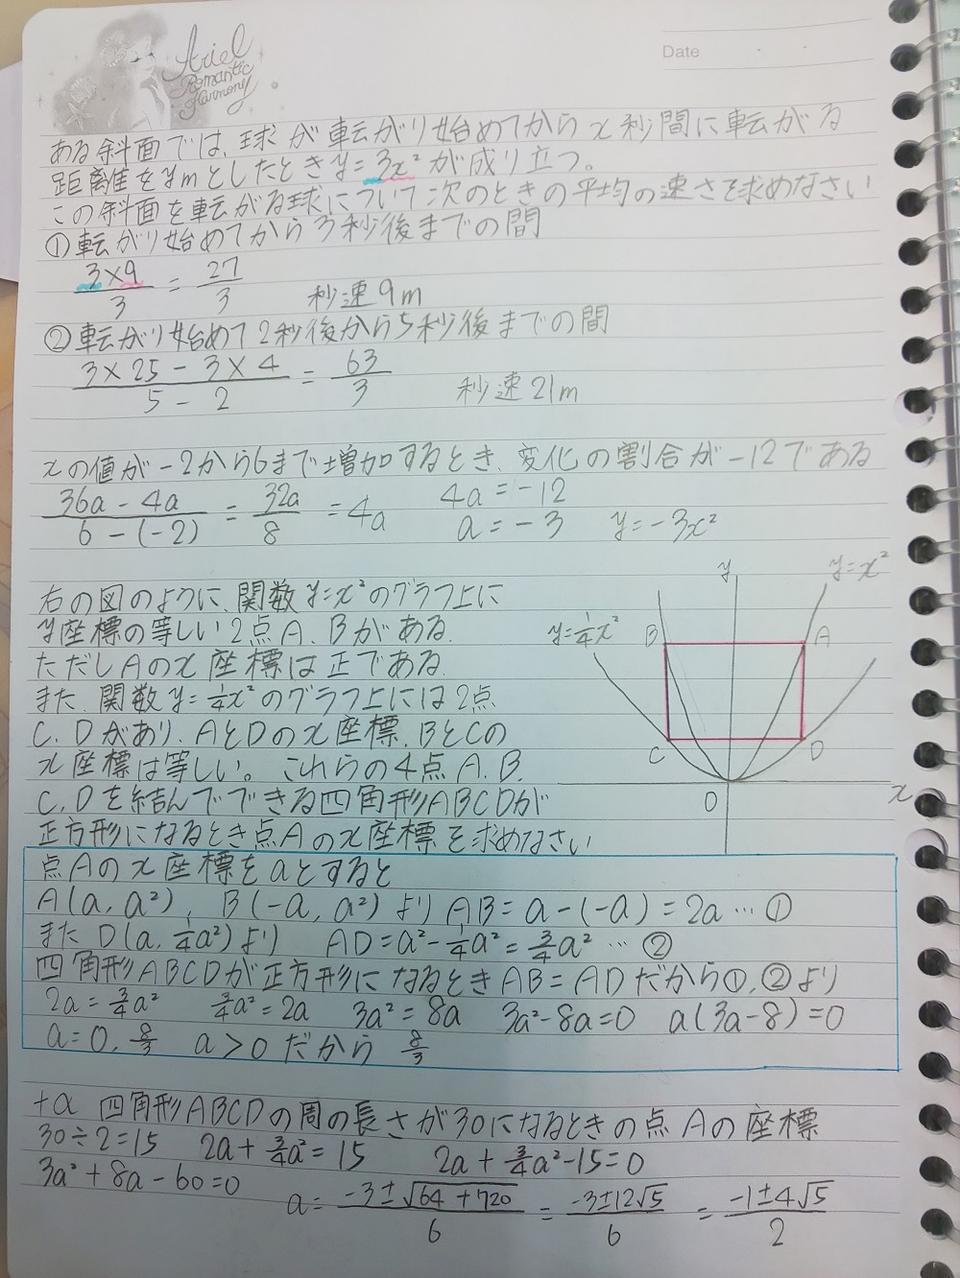 Ariel
Romantic
Harmony
Date
ある斜面では、球が転がり始めてからx秒間に転がる
距離をymとしたときy=3x²が成り立つ。
この斜面を転がる球について次のときの平均の速さを求めなさい
①転がり始めてから3秒後までの間
3×9/3 = 27/3 秒速9m
②転がり始めて2秒後から5秒後までの間
3×25-3×4/5-2 = 63/3 秒速21m
xの値が-2から6まで増加するとき、変化の割合が-12である
36a-4a/6-(-2) = 32a/8 = 4a 4a=-12
a=-3 y=-3x²
右の図のように、関数y=x²のグラフ上に
y座標の等しい2点A、Bがある。
ただしAのx座標は正である。
また、関数y=1/4x²のグラフ上には2点
C、Dがあり、AとDのx座標、BとCの
x座標は等しい。これらの4点A、B、
C、Dを結んでできる四角形ABCDが
正方形になるとき点Aのx座標を求めなさい
y
y=x²
y=1/4x²
B
A
C
D
O
x
点Aのx座標をaとすると
A(a, a²)、B(-a, a²)よりAB=a-(-a)=2a…①
またD(a, 1/4a²)より AD=a²-1/4a²=3/4a²…②
四角形ABCDが正方形になるときAB=ADだから①、②より
2a=3/4a² 3/4a²=2a 3a²=8a 3a²-8a=0 a(3a-8)=0
a=0, 8/3 a>0だから 8/3
+α 四角形ABCDの周の長さが30になるときの点Aの座標
30÷2=15 2a+3/4a²=15 2a+3/4a²-15=0
3a²+8a-60=0
a= -3±√64+720/6 = -3±12√5/6 = -1±4√5/2